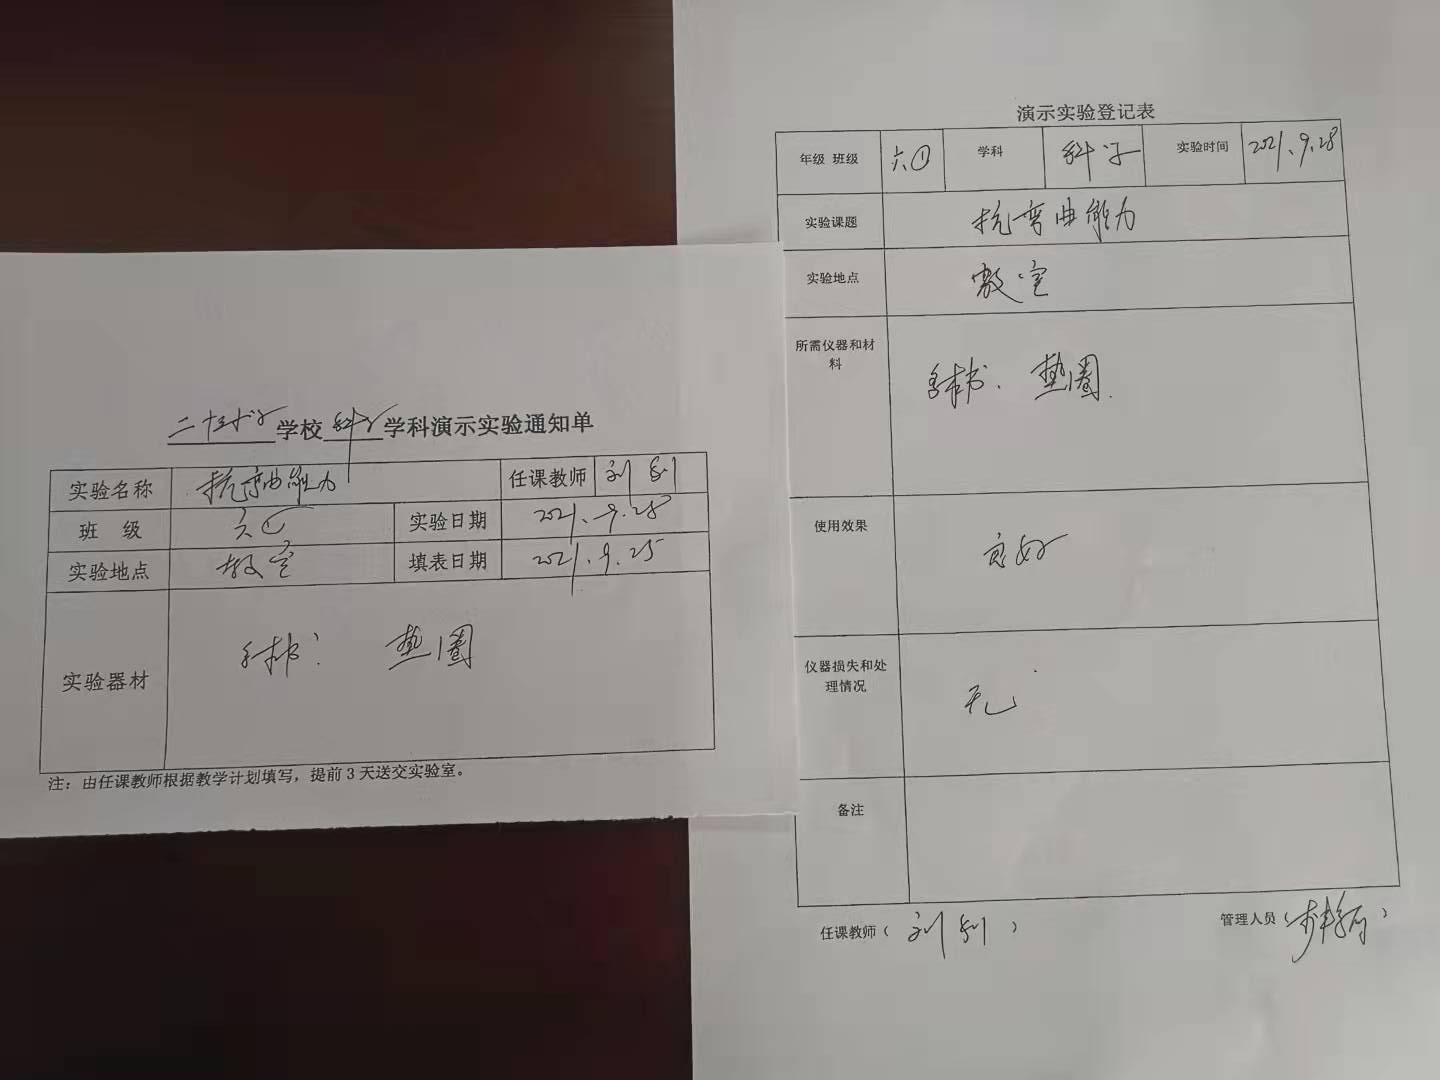 学校科学学科演示实验通知单
实验名称 抗弯曲能力 任课教师 刘
班 级 六① 实验日期 2021.9.28
实验地点 教室 填表日期 2021.9.25
实验器材 垫圈
注：由任课教师根据教学计划填写，提前 3 天送交实验室。
演示实验登记表
年级 班级 六① 学科 科学 实验时间 2021.9.28
实验课题 抗弯曲能力
实验地点 教室
所需仪器和材
料
垫圈.
使用效果 良好
仪器损失和处
理情况
无
备注
任课教师（刘 ） 管理人员（ ）